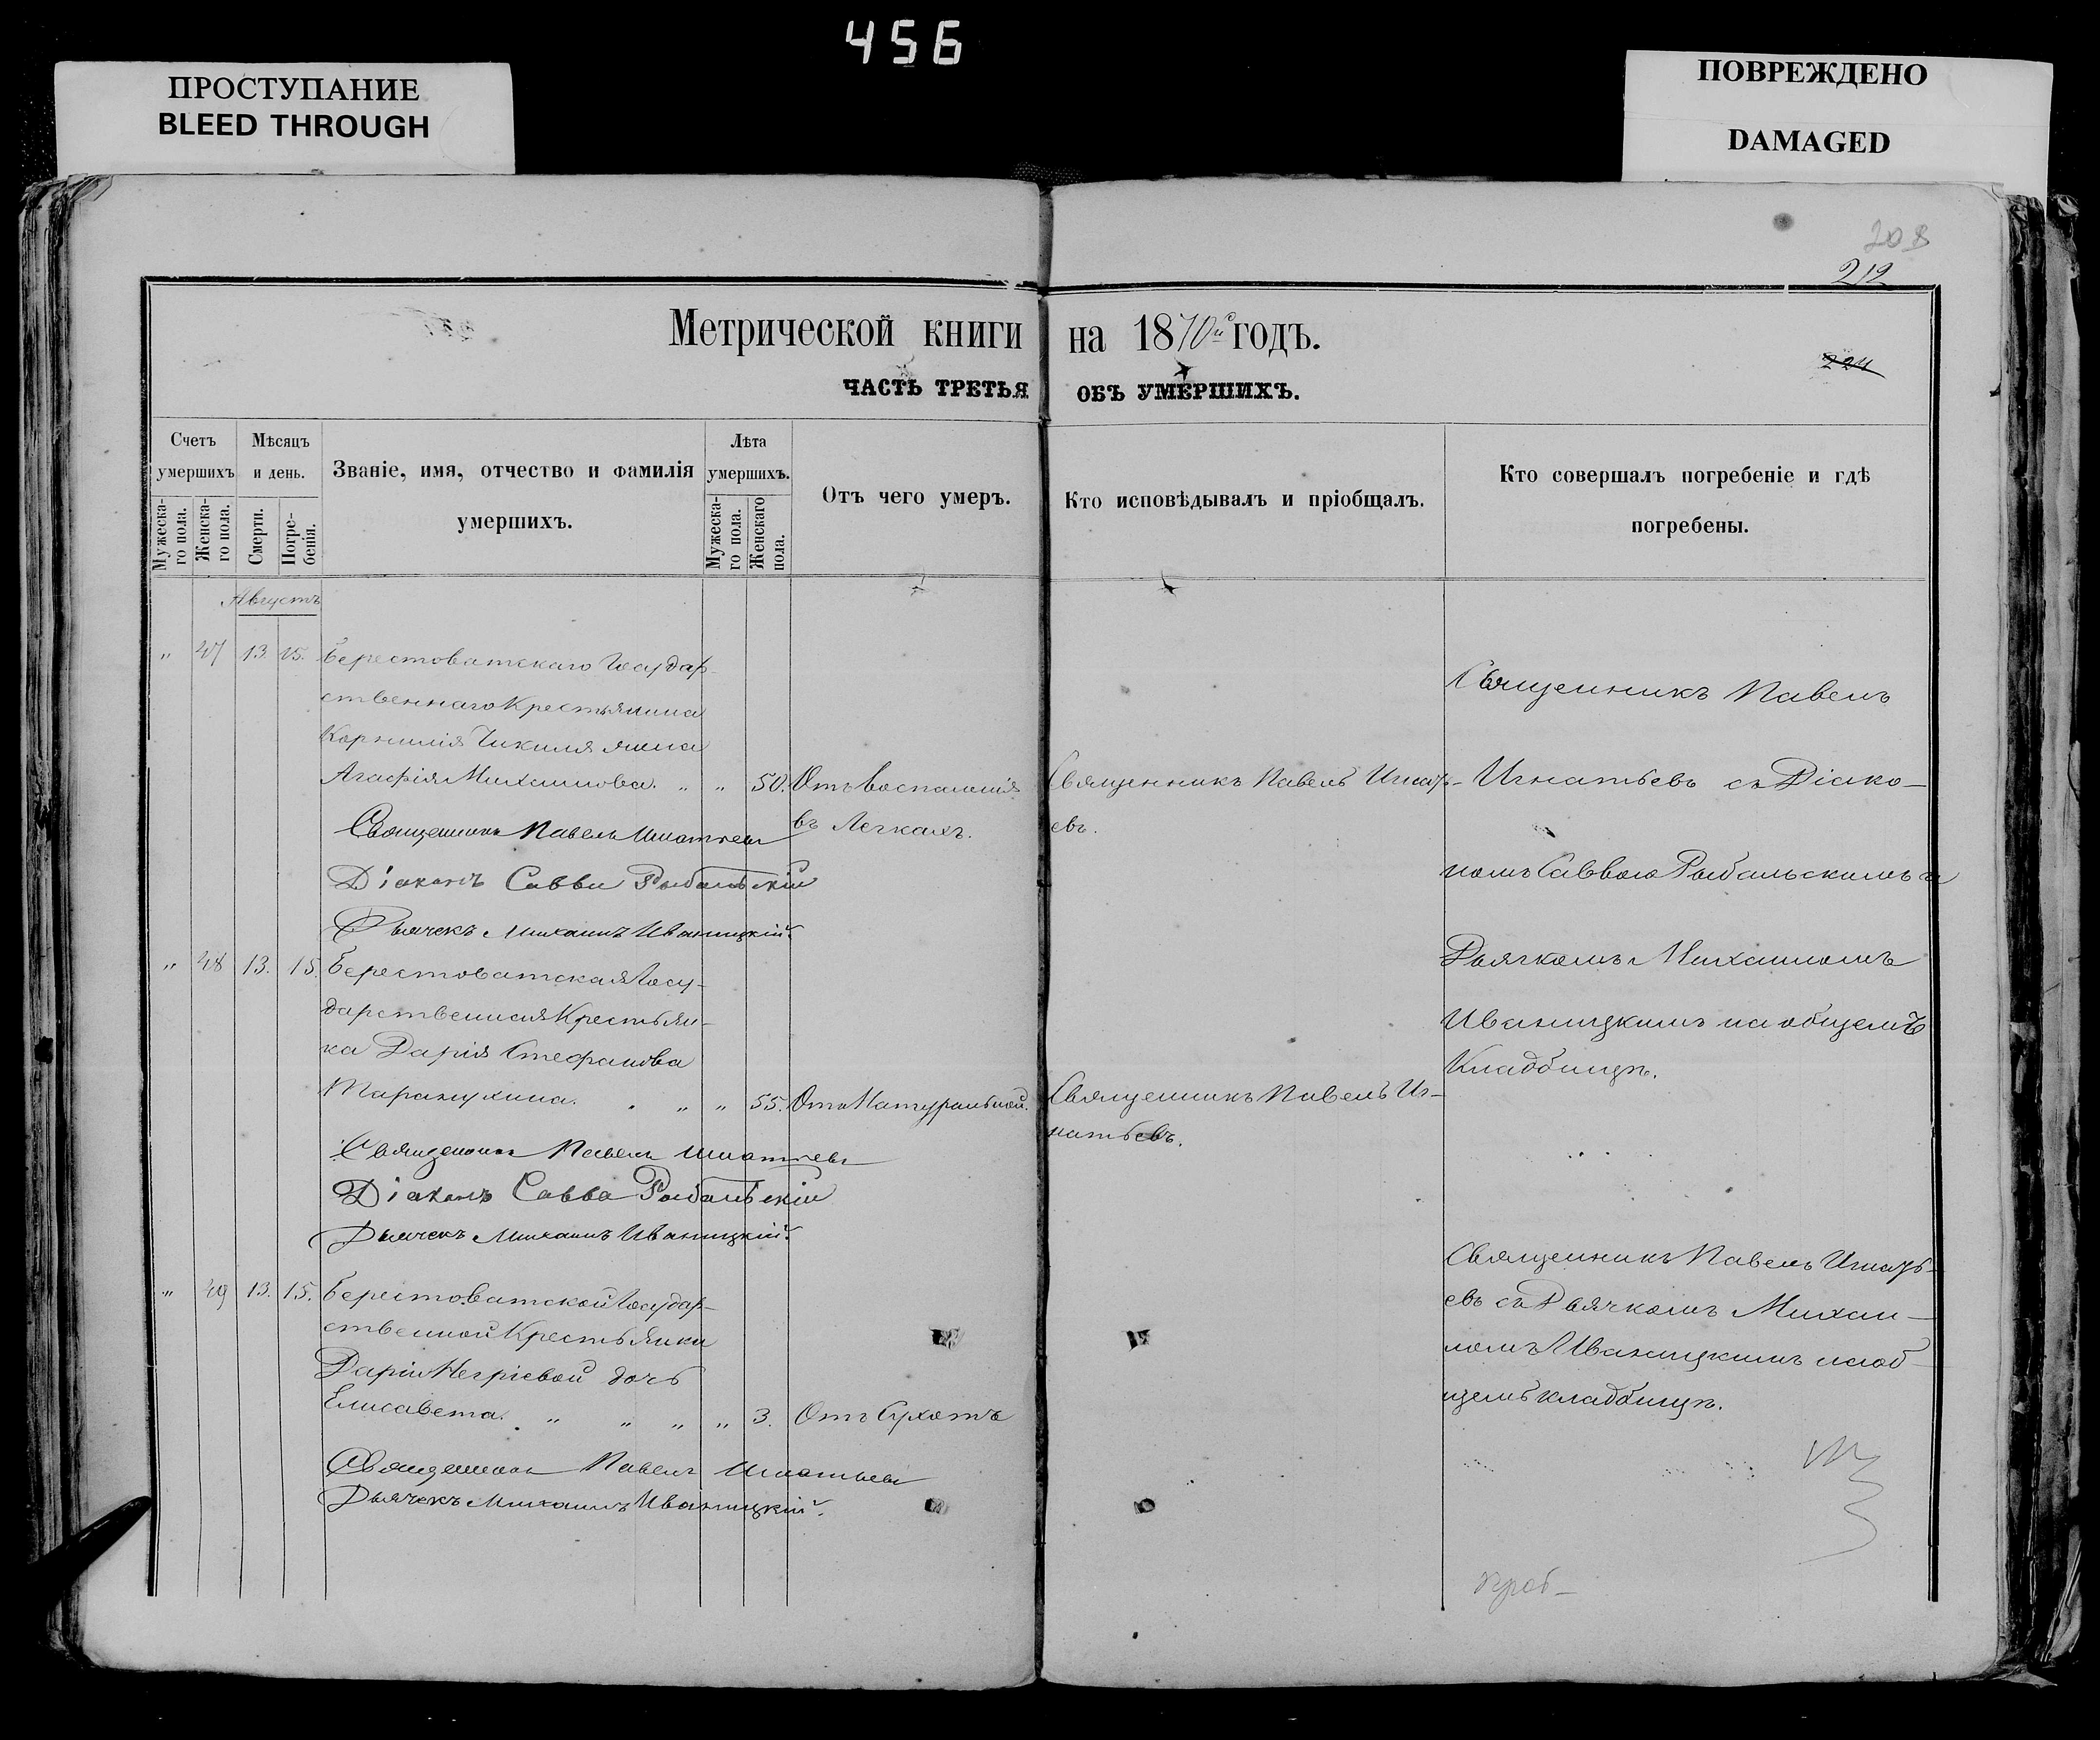 456
ПРОСТУПАНИЕ
BLEED THROUGH
ПОВРЕЖДЕНО
DAMAGED
208
212
Метрической книги на 1870й годъ.
224
ЧАСТЬ ТРЕТЬЯ ОБЪ УМЕРШИХЪ.
Счетъ умершихъ
Мужеска-го пола.
Женска-го пола.
Мѣсяцъ и день.
Смерти.
Погре-бенія.
Званіе, имя, отчество и фамилія
умершихъ.
Лѣта умершихъ.
Мужеска-го пола.
Женскаго пола.
Отъ чего умеръ.
Кто исповѣдывалъ и пріобщалъ.
Кто совершалъ погребеніе и гдѣ
погребены.
Августъ
" 47 13. 15. Берестоватскаго Государ-
ственнаго Крестьянина
Корнилія Чикиля жена
Агафія Михаилова. " " 50. Отъ воспаленія
въ Легкахъ.
Священникъ Павелъ Игнать-
евъ.
Священникъ Павелъ
Игнатьевъ съ Діако-
номъ Саввою Рыбальскимъ и
Дьячкомъ Михаиломъ
Иваницкимъ на общемъ
Кладбищѣ.
Священникъ Павелъ Игнатьевъ
Діаконъ Савва Рыбальскій
Дьячекъ Михаилъ Иваницкій.
" 48 13. 15. Берестоватская Госу-
дарственная Крестьян-
ка Дарія Стефанова
" " 55. Отъ Натуральной.
Священникъ Павелъ Иг-
натьевъ.
Священникъ Павелъ Игнатьевъ
Діаконъ Савва Рыбальскій
Дьячекъ Михаилъ Иваницкій.
" 49 13. 15. Берестоватской Государ-
ственной Крестьянки
Даріи Негріевой дочь
Елисавета. " " " " 3. Отъ Сухотъ
Священникъ Павелъ Игнать-
евъ съ Дьячкомъ Михаи-
ломъ Иваницкимъ на об-
щемъ кладбищѣ.
Священникъ Павелъ Игнатьевъ
Дьячекъ Михаилъ Иваницкій.